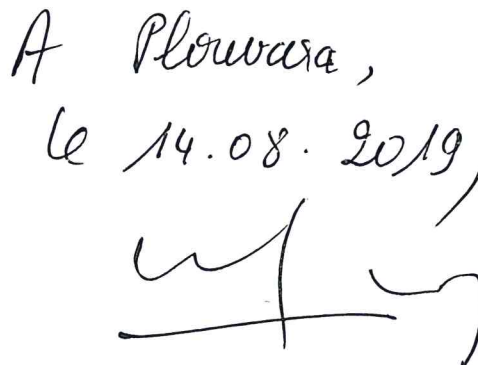 A Plouvara,
le 14.08.2019,